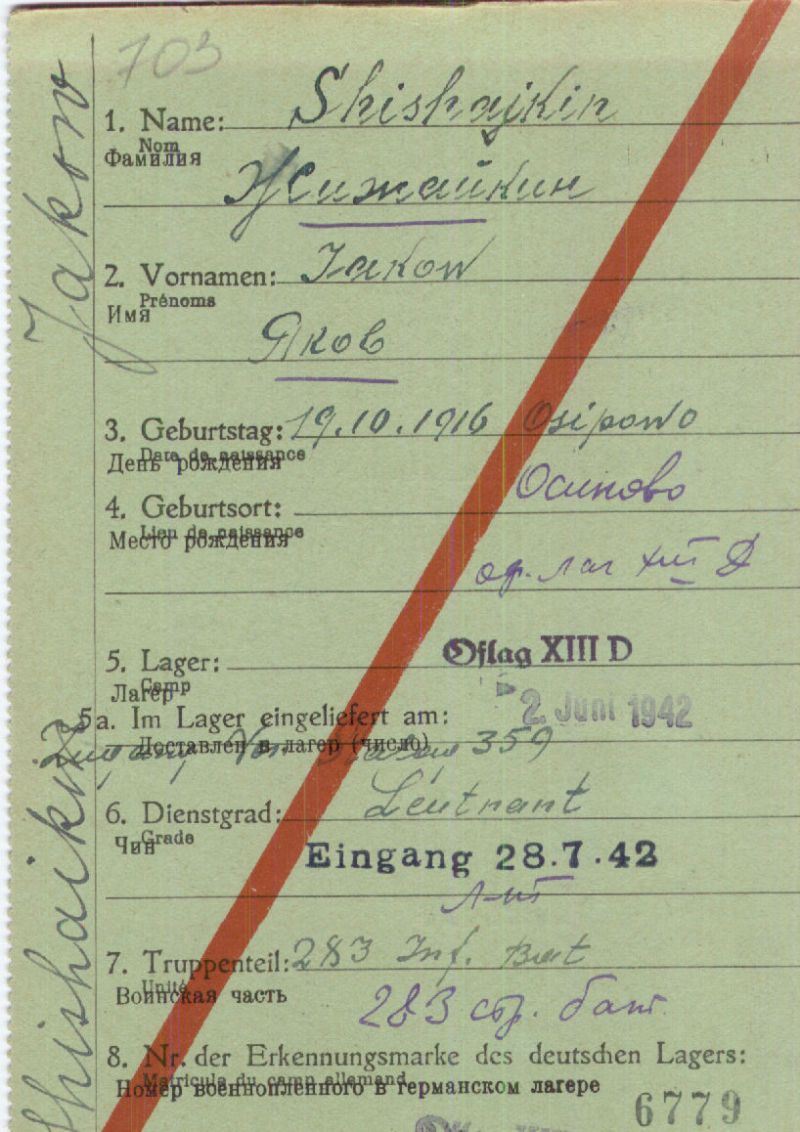 703
Jakow
Shishaikin
1. Name: Shishajkin
Nom
Фамилия
Жижайкин
2. Vornamen: Jakow
Prénoms
Имя
Яков
3. Geburtstag: 19.10.1916 Osipowo
Date de naissance
День рождения
Осипово
4. Geburtsort:
Lieu de naissance
Место рождения
оф. лаг XIII Д
5. Lager: Oflag XIII D
Camp
Лагерь
2. Juni 1942
5a. Im Lager eingeliefert am:
Доставлен в лагерь (число)
von Stalag 359
6. Dienstgrad: Leutnant
Grade
Чин
Eingang 28.7.42
л-нт
7. Truppenteil: 283 Inf. Bat
Unité
Воинская часть
283 стр. бат.
8. Nr. der Erkennungsmarke des deutschen Lagers:
Matricula du camp allemand
Номер военнопленного в германском лагере
6779